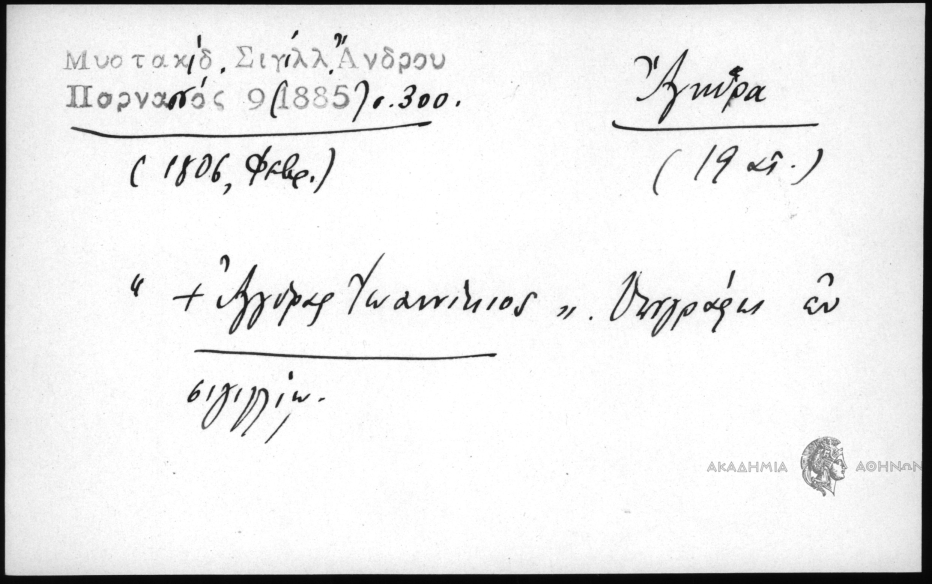 Μυστακίδ. Σιγίλλ. Ἄνδρου
Παρνασσός 9 (1885) σ. 300.
Ἄγκυρα
(1806, Φεβρ.)
(19 αἰ.)
" + Ἀγκύρας Ἰωαννίκιος ". Ὑπογράφει ἐν
σιγιλλίῳ.
ΑΚΑΔΗΜΙΑ ΑΘΗΝΩΝ